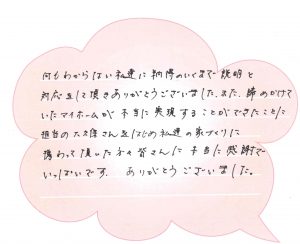 何もわからない私達に納得のいくまで説明と
対応をして頂きありがとうございました。また、諦めかけて
いたマイホームが本当に実現することができたことに
担当の大久保さんをはじめ私達の家づくりに
携わって頂いた方々皆さんに本当に感謝で
いっぱいです。 ありがとうございました。